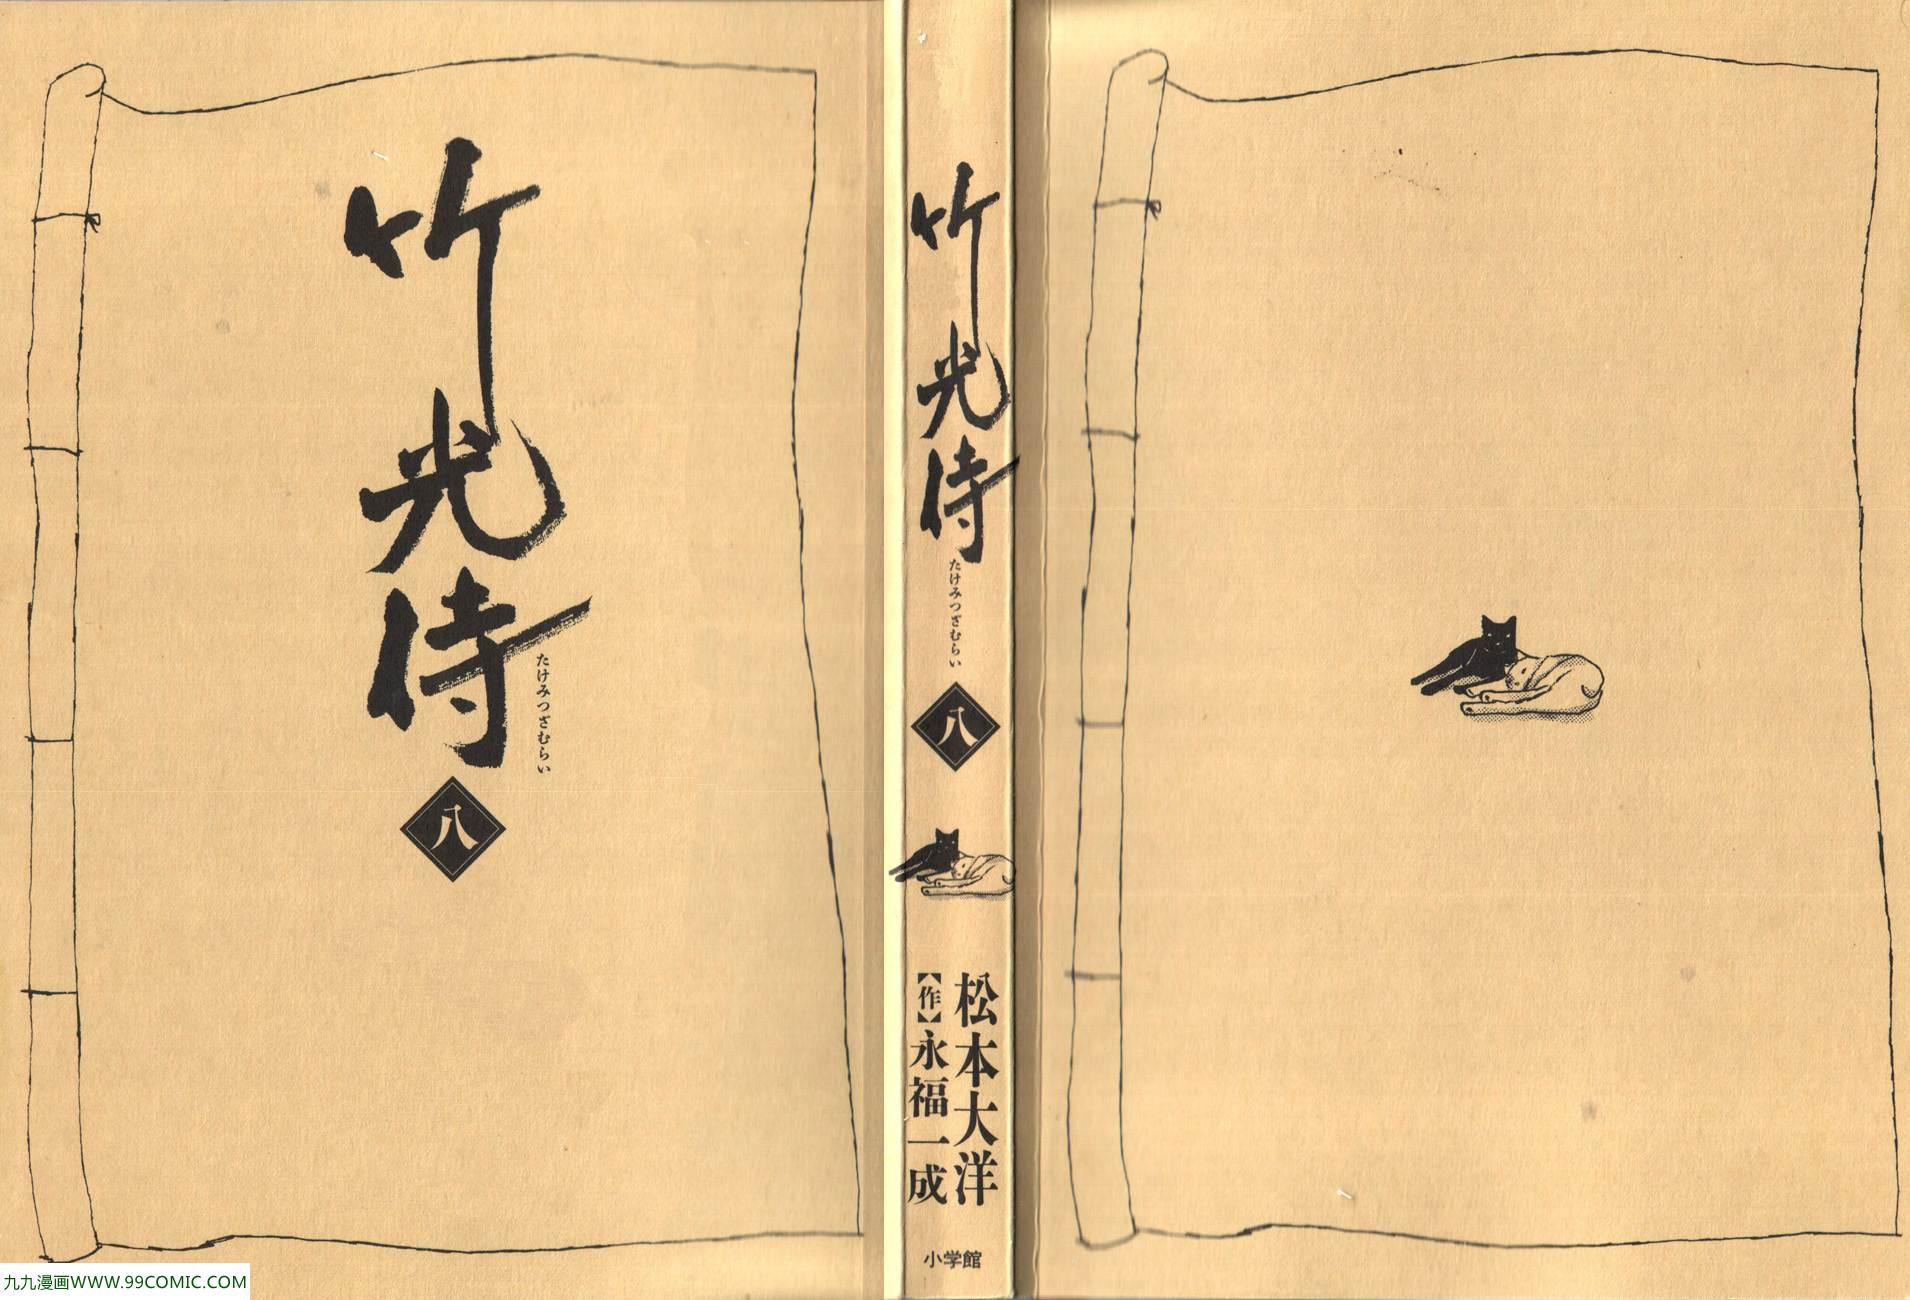 竹光侍
たけみつざむらい
八
竹光侍
たけみつざむらい
八
松本大洋
【作】永福一成
小学館
九九漫画WWW.99COMIC.COM